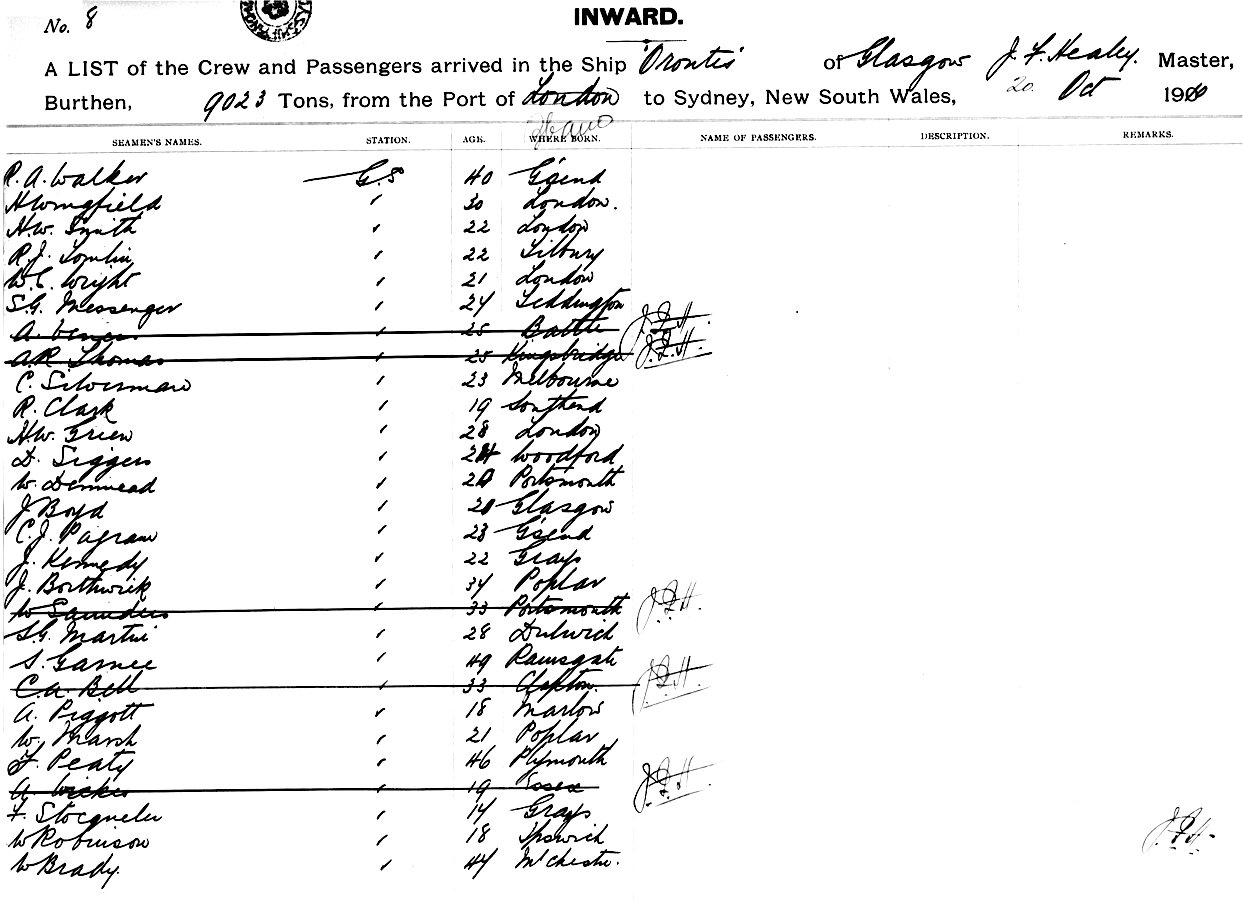 No. 8
INWARD.
A LIST of the Crew and Passengers arrived in the Ship 'Orontes' of Glasgow J. F. Healey. Master,
Burthen, 9023 Tons, from the Port of London to Sydney, New South Wales, 20. Oct 190
SEAMEN'S NAMES. STATION. AGE. WHERE BORN. NAME OF PASSENGERS. DESCRIPTION. REMARKS.
R. A. Walker G.S 40 G'send
H Wingfield " 30 London.
H.W. Smith " 22 London
R.J. Tomlin " 22 Tilbury
W.C. Wright " 21 London
S.G. Messenger " 24 Teddington
A. " 25 Battle J.F.H.
A.R. Thomas " 25 Kingsbridge J.F.H.
C. Silverman " 23 Melbourne
R. Clark " 19 Southend
H.W. Green " 28 London
D. Siggers " 24 Woodford
W. Dennead " 2 Portsmouth
J Boyd " 20 Glasgow
C.J. Pagram " 23 G'send
J. Kennedy " 22 Grays
J. Borthwick " 34 Poplar
W Saunders " 33 Portsmouth J.F.H.
S.G. Martin " 28 Dulwich
S. Garnee " 49 Ramsgate
C.A. Bell " 33 Clapton. J.F.H.
A. Piggott " 18 Marlow
W. Marsh " 21 Poplar
F. Peaty " 46 Plymouth
A. Wickes " 19 Essex J.F.H.
F. Stocqueler " 14 Grays
W Robinson " 18 Ipswich J.F.H.
W Brady. " 44 M'chester.